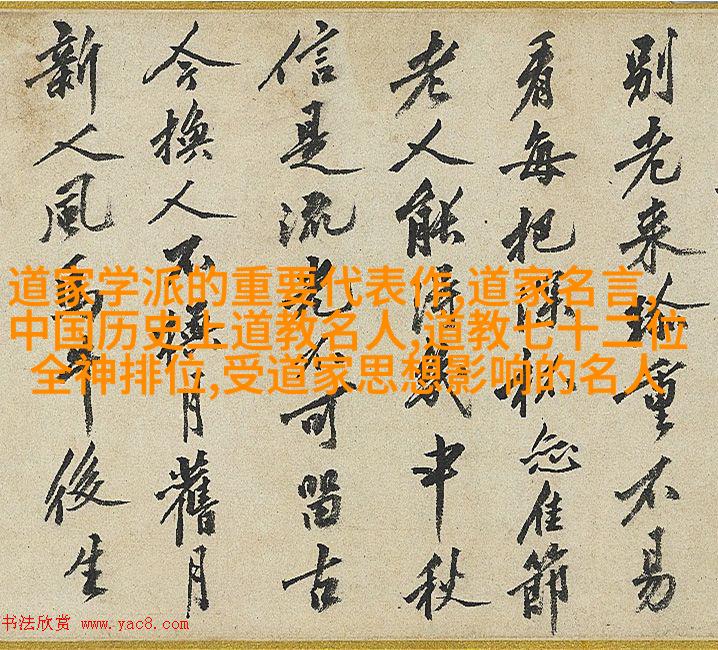 別老来重不易
看每把深杯佳節
老人能得幾中秋
信是流光不可留古
今換人不換月舊月
新人風馬牛後生
道家学派的重要代表作,道家名言,
中国历史上道教名人,道教七十二位
全神排位,受道家思想影响的名人
书法欣赏 www.yac8.com